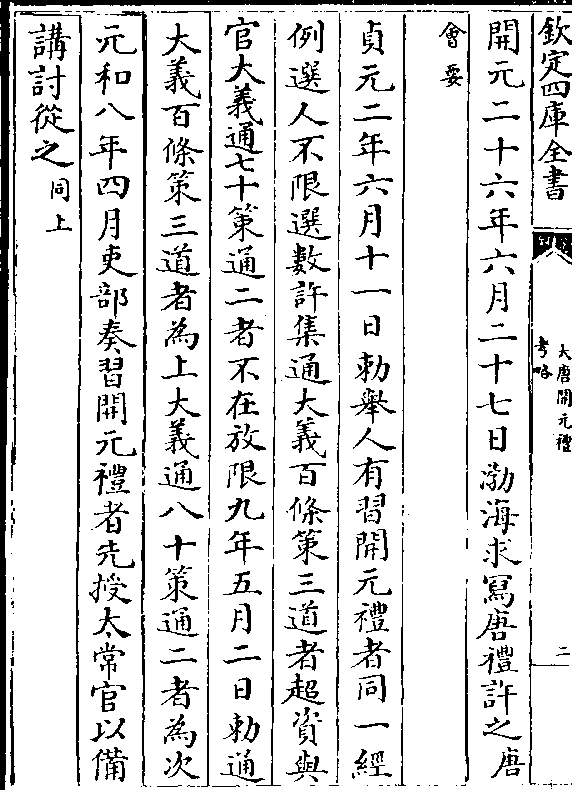 欽定四庫全書
大唐開元禮
考略
二
開元二十六年六月二十七日渤海求寫唐禮許之唐
會要
貞元二年六月十一日勅舉人有習開元禮者同一經
例選人不限選數許集通大義百條策三道者超資與
官大義通七十策通二者不在放限九年五月二日勅通
大義百條策三道者為上大義通八十策通二者為次
元和八年四月吏部奏習開元禮者先授太常官以備
講討從之同上